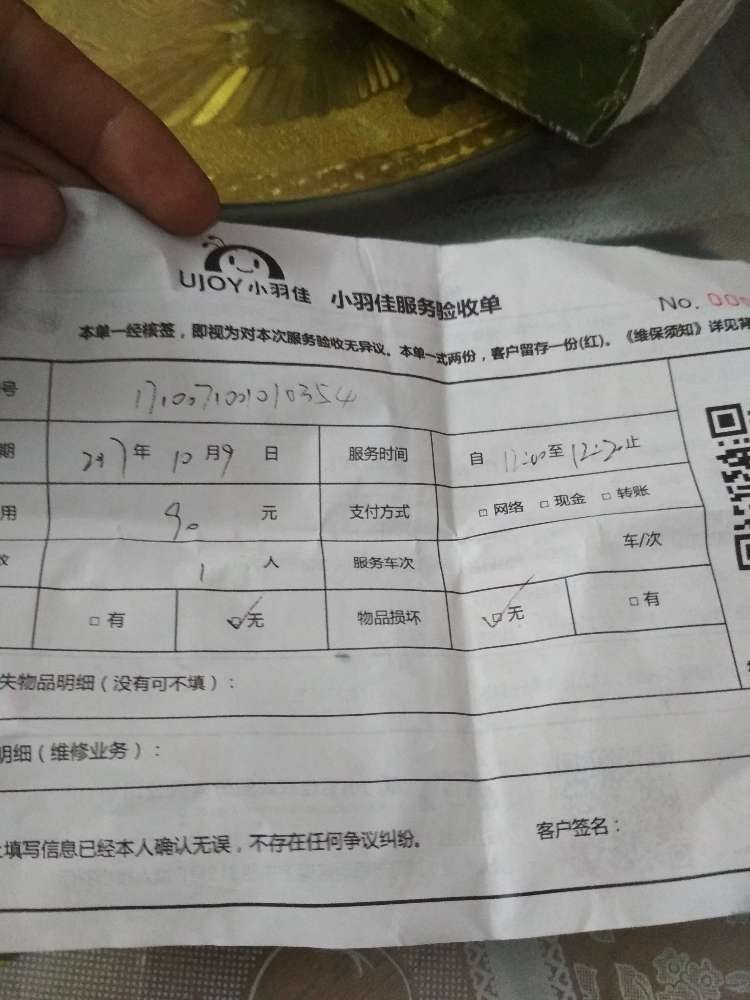 UJOY小羽佳 小羽佳服务验收单 No. 00
本单一经核签，即视为对本次服务验收无异议。本单一式两份，客户留存一份(红)。《维保须知》详见背
号 1710071001010354
期 2017年 10月9日 服务时间 自 11:00至 12:20止
用 90 元 支付方式 □ 网络 □ 现金 □ 转账
数 1 人 服务车次 车/次
□ 有 ☑ 无 物品损坏 ☑ 无 □ 有
失物品明细（没有可不填）：
明细（维修业务）：
上填写信息已经本人确认无误，不存在任何争议纠纷。 客户签名：